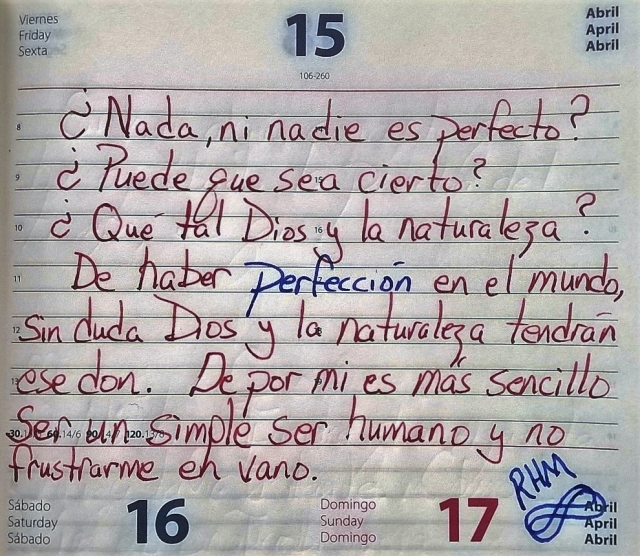 Viernes
Friday
Sexta
15
Abril
April
Abril
106-260
8 ¿Nada, ni nadie es perfecto?
9 ¿Puede que sea cierto?
10 ¿Qué tal Dios y la naturaleza?
11 De haber perfección en el mundo,
12 Sin duda Dios y la naturaleza tendrán
ese don. De por mi es más sencillo
Ser un simple ser humano y no
frustrarme en vano.
RHM
Sábado
Saturday
Sábado
16
Domingo
Sunday
Domingo
17
Abril
April
Abril